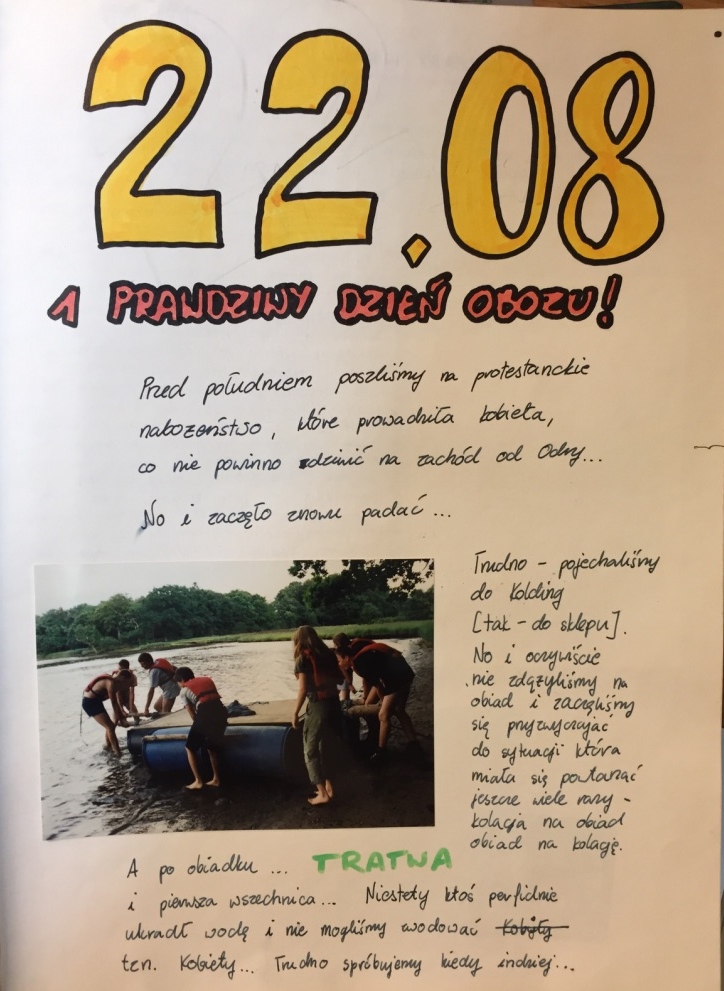 22.08
1 PRAWDZIWY DZIEŃ OBOZU!
Przed południem poszliśmy na protestanckie
nabożeństwo, które prowadziła kobieta,
co nie powinno zdziwić na zachód od Odry...
No i zaczęło znowu padać...
Trudno - pojechaliśmy
do Kolding
[tak - do sklepu].
No i oczywiście
nie zdążyliśmy na
obiad i zaczęliśmy
się przyzwyczajać
do sytuacji która
miała się powtarzać
jeszcze wiele razy -
kolacja na obiad
obiad na kolację.
A po obiadku ... TRATWA
i pierwsza wszechnica... Niestety ktoś perfidnie
ukradł wodę i nie mogliśmy zwodować Kobyły
tzn. Kobiety... Trudno spróbujemy kiedy indziej...